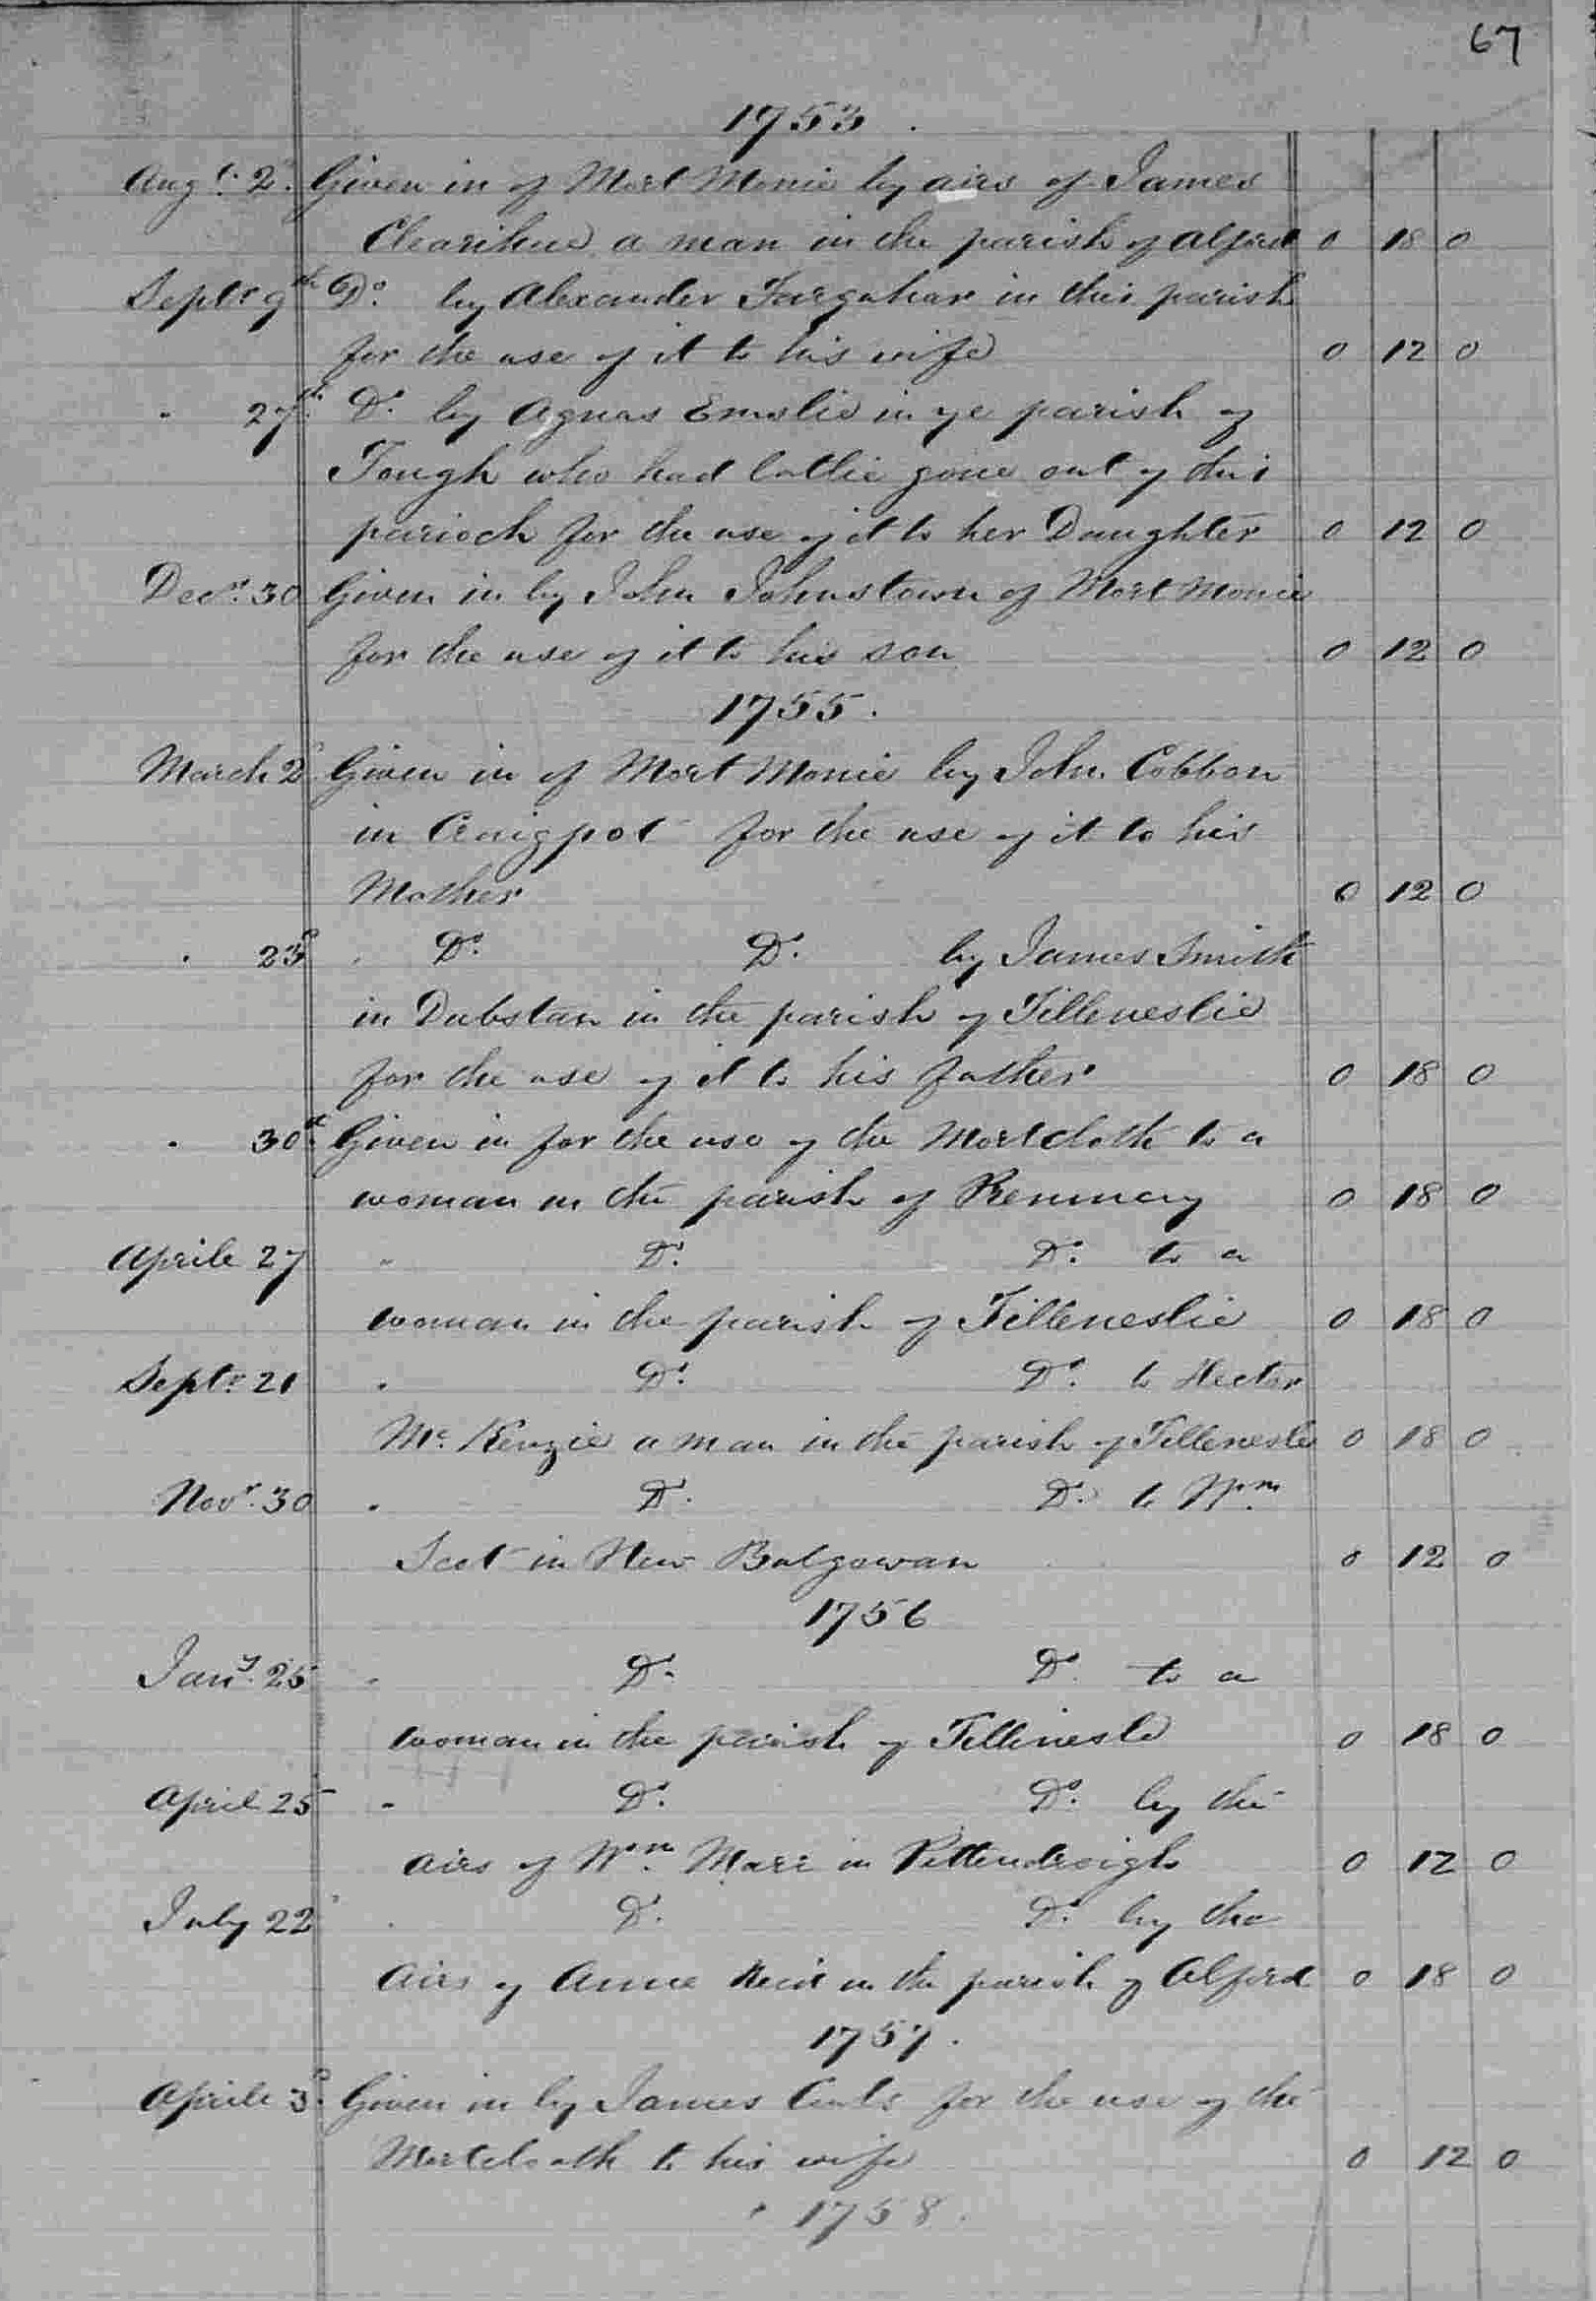 67
1753.
Augt. 2d. Given in of Mort Monie by airs of James
Clearihue a man in the parish of Alford 0 18 0
Septr 9th Do. by Alexander Farquhar in this parish
for the use of it to his wife 0 12 0
" 27th. Do. by Agnas Emslie in ye parish of
Tough who had latlie gone out of this
parioch for the use of it to her Daughter 0 12 0
Decr. 30 Given in by John Johnstown of Mort Monie
for the use of it to his son 0 12 0
1755.
March 2d Given in of Mort Monie by John Cobbon
in Craigpot for the use of it to his
Mother 0 12 0
" 23d " Do. Do. by James Smith
in Dubstan in the parish of Tilleneslie
for the use of it to his father 0 18 0
" 30th. Given in for the use of the Mortcloth to a
woman in the parish of Kenmay 0 18 0
Aprile 27 " Do. Do. to a
woman in the parish of Tilleneslie 0 18 0
Septr. 21 " Do. Do. to Hector
Mc. Kenzie a man in the parish of Tillenesle 0 18 0
Novr. 30 " Do. Do. to Wm.
Scot in New Balgowan 0 12 0
1756
Jany. 25 " Do. Do. to a
woman in the parish of Tillinesle 0 18 0
April 25 " Do. Do. by the
airs of Wm. Marr in Pittendreigh 0 12 0
July 22d " Do. Do. by the
Airs of Anne Reid in the parish of Alford 0 18 0
1757.
Aprile 3d. Given in by James Couts for the use of the
Mortcloath to his wife 0 12 0
1758.